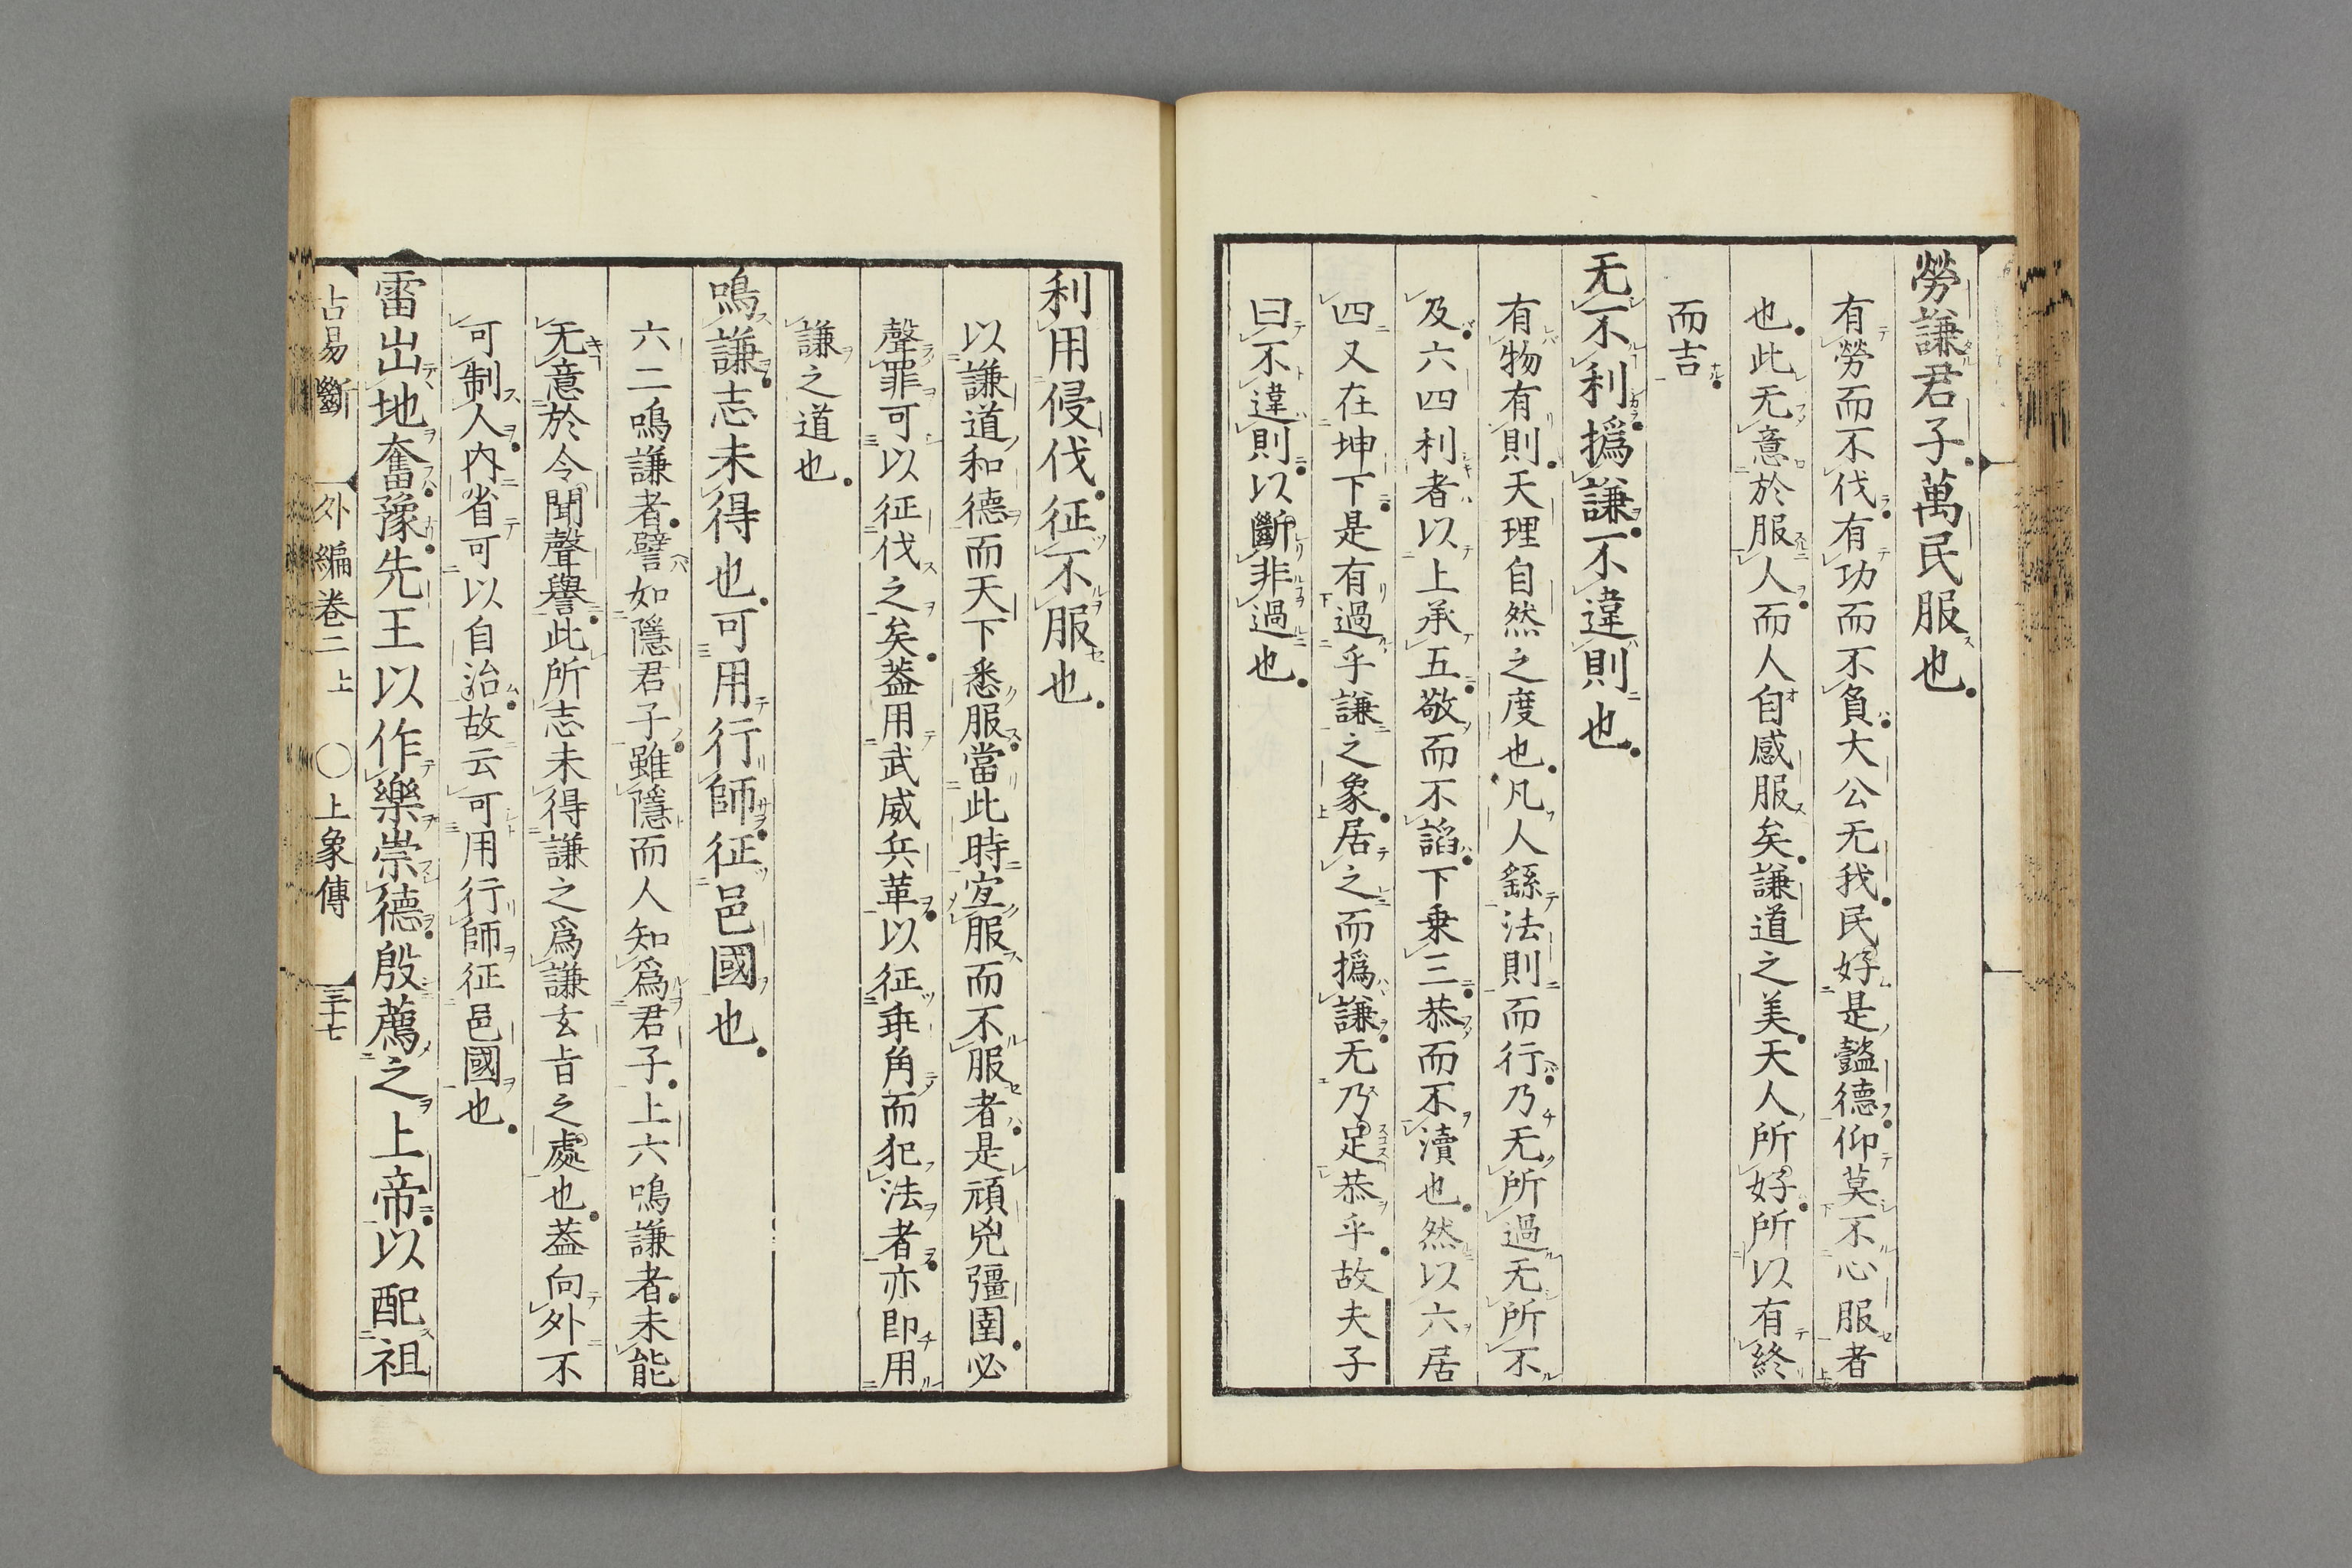 勞謙君子萬民服也
有勞而不伐有功而不負大公无我民好是懿德仰莫不心服者
也此无意於服人而人自感服矣謙道之美天人所好所以有終
而吉
无不利撝謙不違則也
有物有則天理自然之度也凡人繇法則而行乃无所過无所不
及六四利者以上承五敬而不諂下乗三恭而不瀆也然以六居
四又在坤下是有過乎謙之象居之而撝謙无乃足恭乎故夫子
曰不違則以斷非過也
利用侵伐征不服也
以謙道和德而天下悉服當此時宜服而不服者是頑兇彊圉必
聲罪可以征伐之矣葢用武威兵革以征乖角而犯法者亦即用
謙之道也
鳴謙志未得也可用行師征邑國也
六二鳴謙者譬如隱君子雖隱而人知爲君子上六鳴謙者未能
无意於令聞聲譽此所志未得謙之爲謙玄旨之處也葢向外不
可制人内省可以自治故云可用行師征邑國也
雷出地奮豫先王以作樂崇德殷薦之上帝以配祖
占易斷 外編卷二上 〇上象傳 三十七